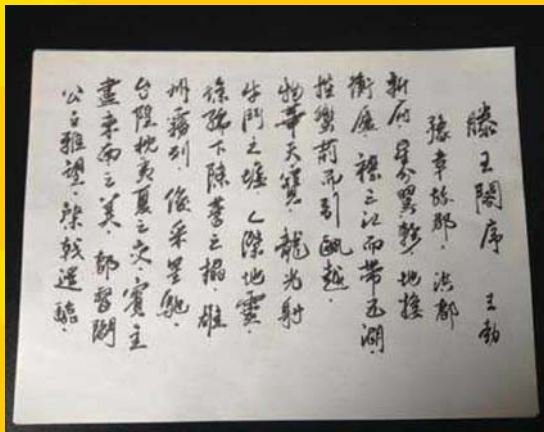 滕王閣序 王勃
豫章故郡.洪都
新府.星分翼軫.地接
衡廬.襟三江而帶五湖.
控蠻荊而引甌越.
物華天寶.龍光射
牛鬥之墟.人傑地靈.
徐孺下陳蕃之榻.雄
州霧列.俊采星馳.
台隍枕夷夏之交.賓主
盡東南之美.都督閻
公之雅望.棨戟遥臨.